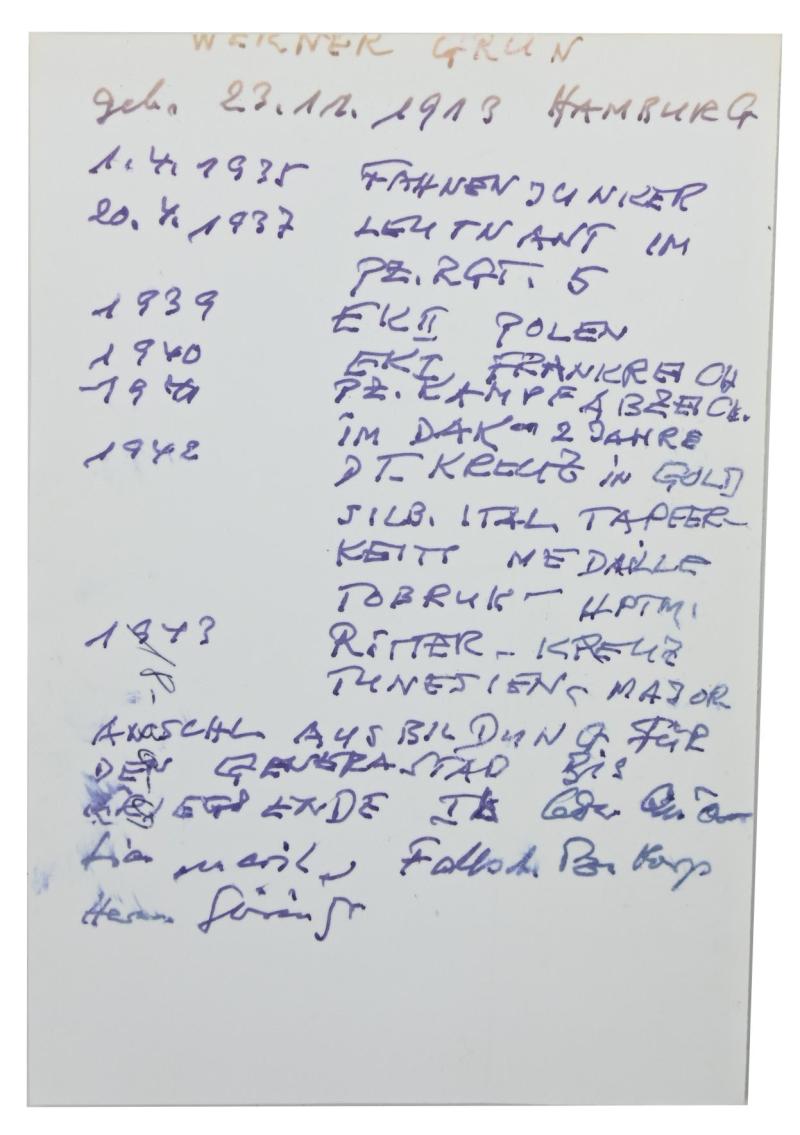 WERNER GRÜN
geb. 23.12.1913 HAMBURG
1.4.1935 FAHNENJUNKER
20.4.1937 LEUTNANT IM
PZ.RGT. 5
1939 EK II POLEN
1940 EK I FRANKREICH
1941 PZ.KAMPFABZEICH.
IM DAK - 2 JAHRE
1942 DT. KREUZ IN GOLD
SILB. ITAL. TAPFER-
KEITS MEDAILLE
TOBRUK - HPTM.
1943 RITTER-KREUZ
TUNESIEN - MAJOR
ANSCHL. AUSBILDUNG FÜR
DEN GENERASTAB BIS
KRIEGSENDE
Fallsch. Pz. Korps
Herm. Göring